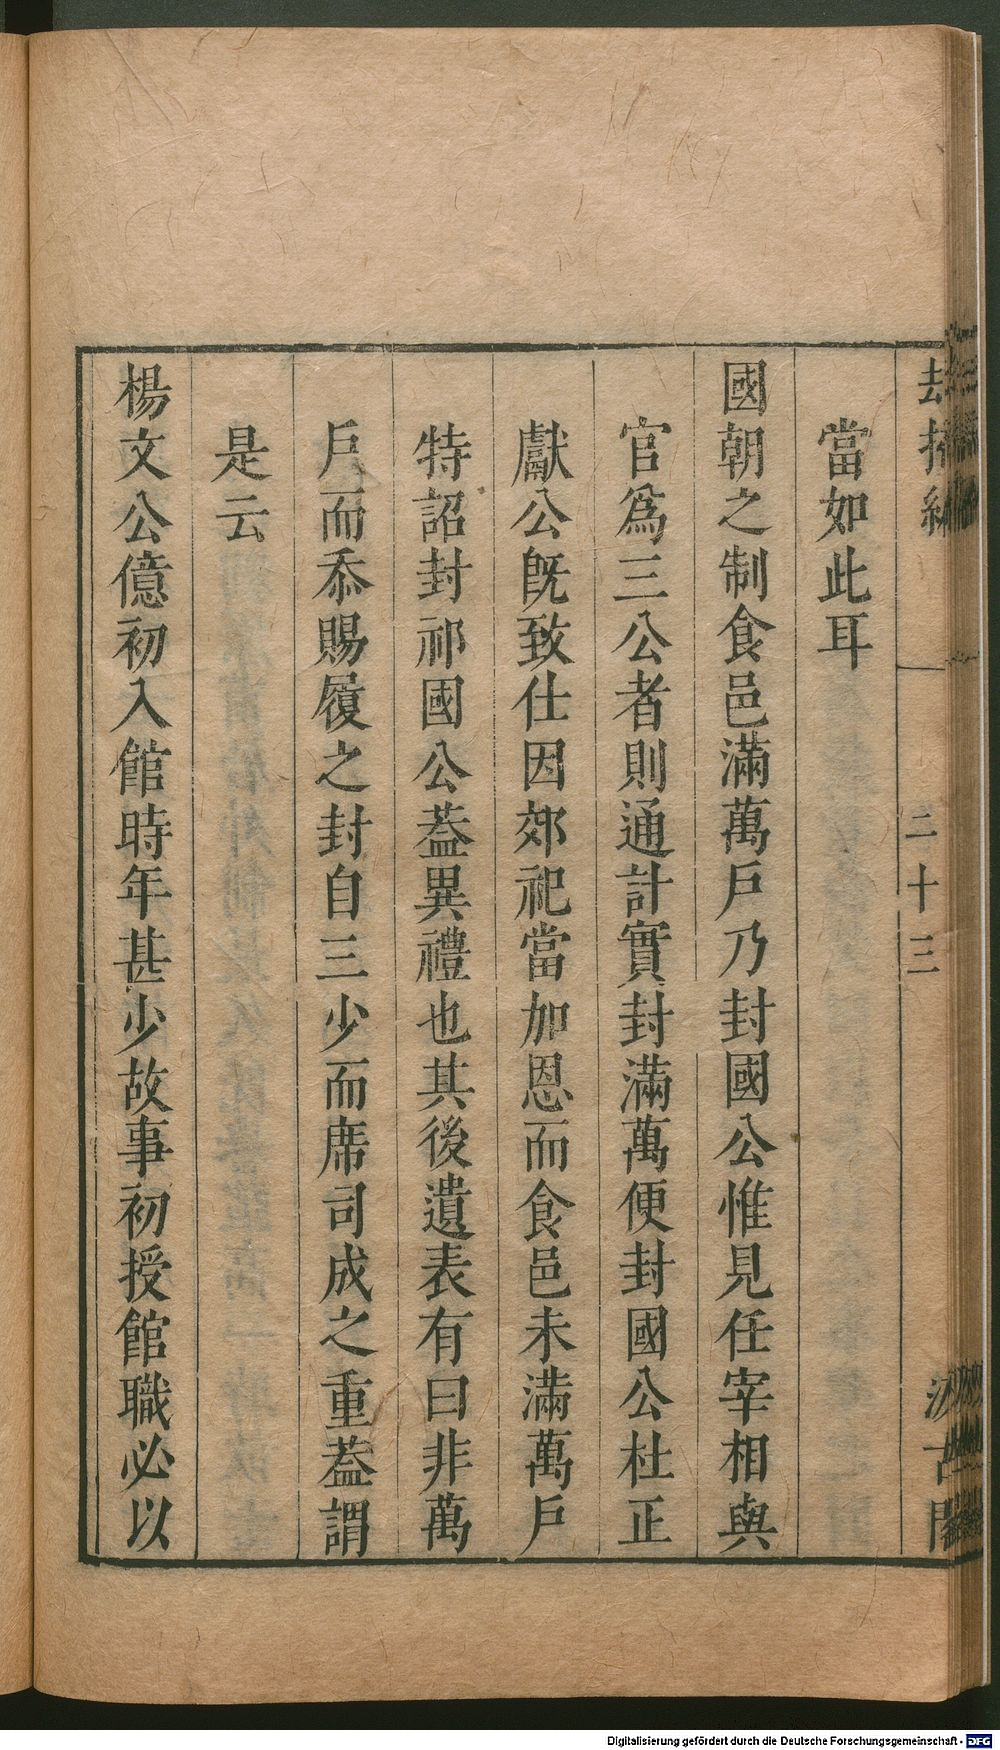 當如此耳
國朝之制食邑滿萬戶乃封國公惟見任宰相與
官爲三公者則通計實封滿萬便封國公杜正
獻公旣致仕因郊祀當加恩而食邑未滿萬戶
特詔封祁國公葢異禮也其後遺表有曰非萬
戶而忝賜履之封自三少而席司成之重葢謂
是云
楊文公億初入館時年甚少故事初授館職必以
二十三
Digitalisierung gefördert durch die Deutsche Forschungsgemeinschaft - DFG